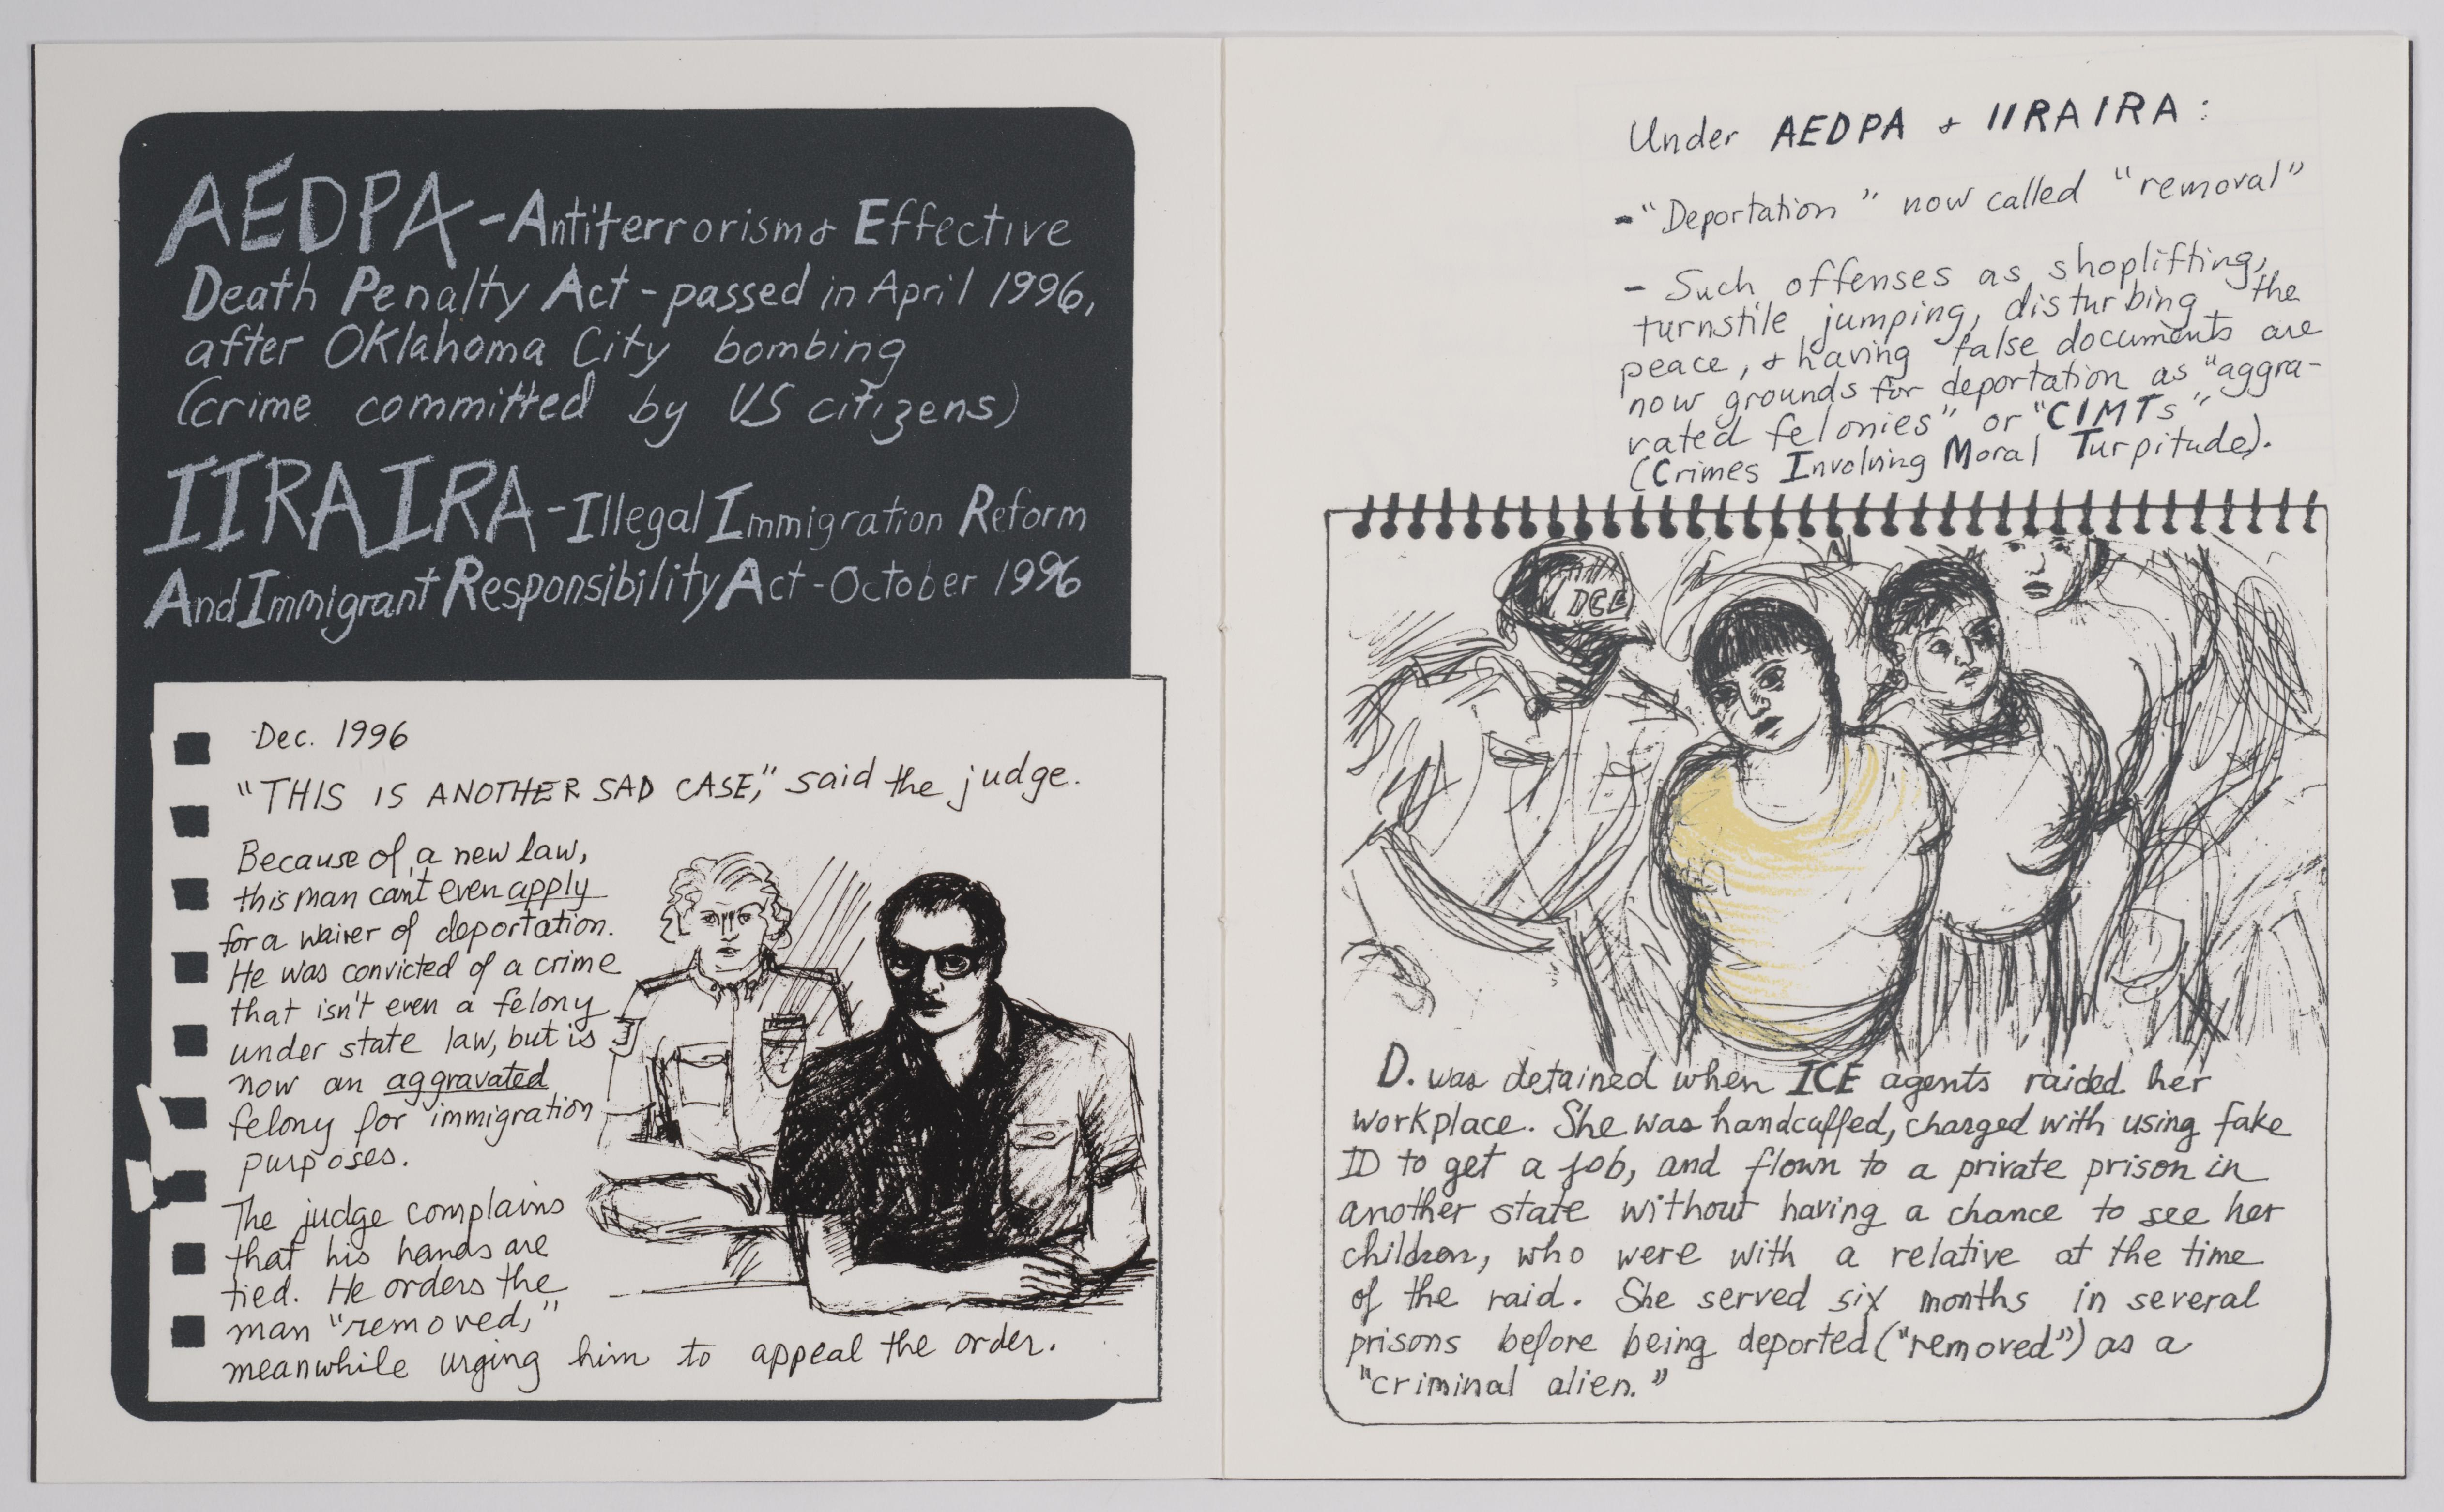 AEDPA-Antiterrorism & Effective
Death Penalty Act - passed in April 1996,
after Oklahoma City bombing
(crime committed by US citizens)
IIRAIRA-Illegal Immigration Reform
And Immigrant Responsibility Act-October 1996
Dec. 1996
"THIS IS ANOTHER SAD CASE," said the judge.
Because of a new law,
this man can't even apply
for a waiver of deportation.
He was convicted of a crime
that isn't even a felony
under state law, but is
now an aggravated
felony for immigration
purposes.
The judge complains
that his hands are
tied. He orders the
man "removed,"
meanwhile urging him to appeal the order.
Under AEDPA + IIRAIRA:
-"Deportation" now called "removal"
- Such offenses as shoplifting,
turnstile jumping, disturbing the
peace, + having false documents are
now grounds for deportation as "aggra-
vated felonies" or "CIMTs"
(Crimes Involving Moral Turpitude).
ICE
D. was detained when ICE agents raided her
workplace. She was handcuffed, charged with using fake
ID to get a job, and flown to a private prison in
another state without having a chance to see her
children, who were with a relative at the time
of the raid. She served six months in several
prisons before being deported ("removed") as a
"criminal alien."